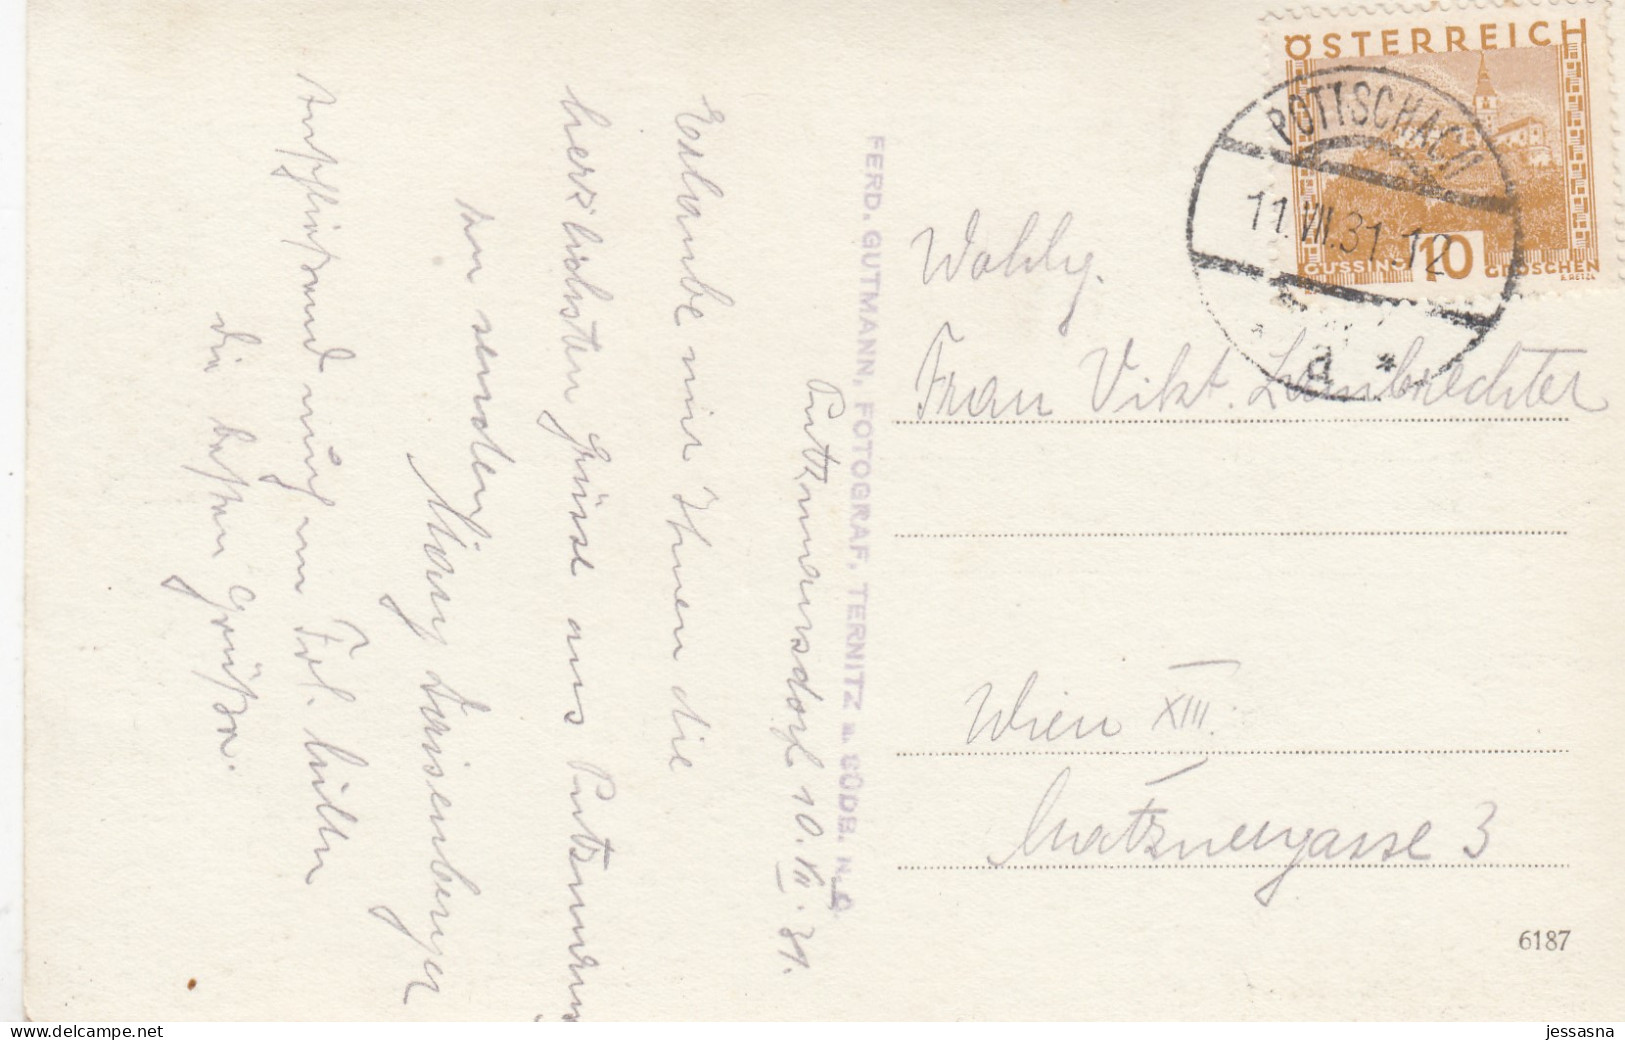 Putzmannsdorf 10.VII.31.
Erlaube mir Ihnen die
herzlichsten Grüsse aus Putzmanns
zu senden
Mary
anschließend mich an Frl.
die besten Grüße.
FERD. GUTMANN, FOTOGRAF, TERNITZ a. SÜDB. N.Ö.
ÖSTERREICH
GÜSSING 10 GROSCHEN
POTTSCHACH
11.VII.31.12
a *
Wohlg.
Frau Vikt. Lambrechter
Wien XIII.
Matznergasse 3
6187
www.delcampe.net
jessasna